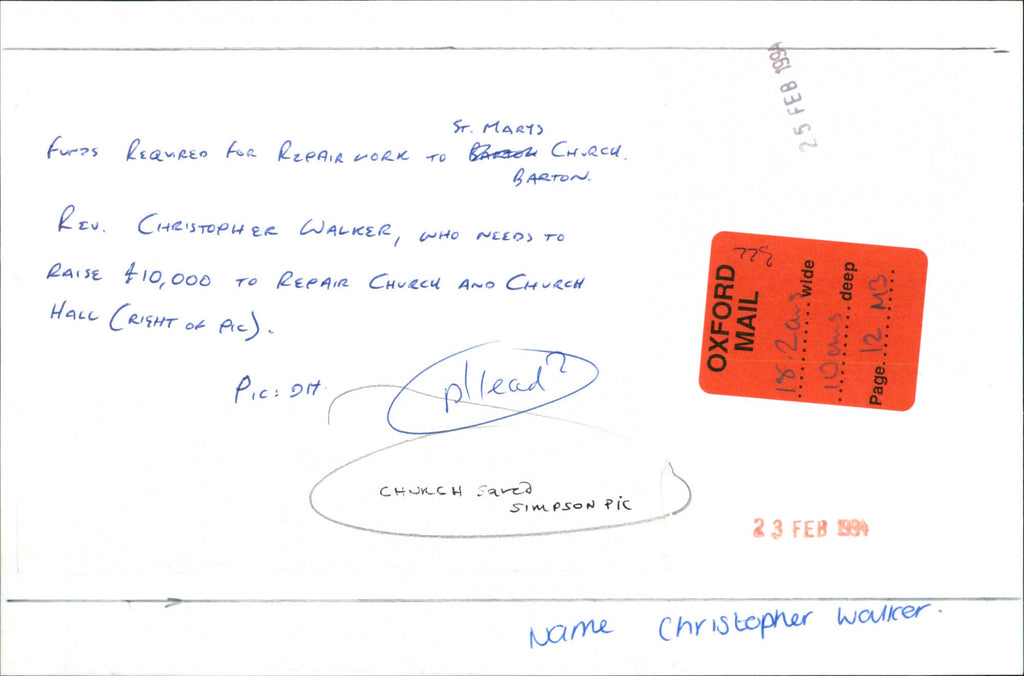 25 FEB 1994
ST. MARYS
FUNDS REQUIRED FOR REPAIR WORK TO BARTON CHURCH.
BARTON.
REV. CHRISTOPHER WALKER, WHO NEEDS TO
RAISE £10,000 TO REPAIR CHURCH AND CHURCH
HALL (RIGHT OF PIC).
PIC: DH
p1lead?
CHURCH Saved
SIMPSON PIC
OXFORD
MAIL
18.2cms wide
10cms deep
Page. 12 M3
23 FEB 1994
Name Christopher Walker.